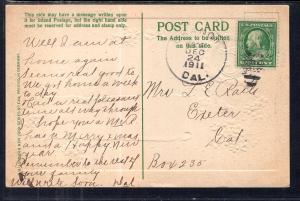 This side may have a message written upon
it for Inland Postage, but the right hand side
must be reserved for address and stamp only.
POST CARD
The Address to be written
on this side.
DEC
24
1911
CAL.
Well I am at
home again
Seems real good to
We got home a week
to day
Had a real pleasant
time all way through
Hope you & Will
has a Merry Xmas
and a Happy New
year
Remember to the rest of
your family
Will write soon.
Mrs L E
Exeter
Cal
Box 235